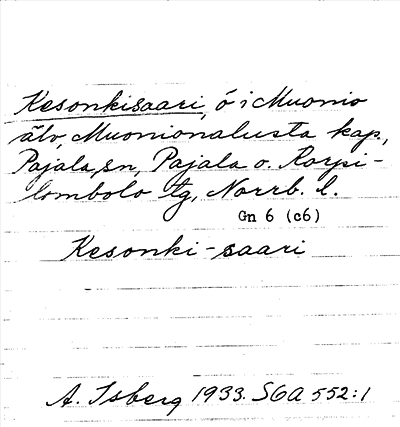 Kesonkisaari, ö i Muonio
älv, Muonionalusta kap.,
Pajala sn, Pajala o. Korpi-
lombolo tg, Norrb. l.
Gn 6 (c6)
Kesonki-saari
A. Isberg 1933. SOA 552:1